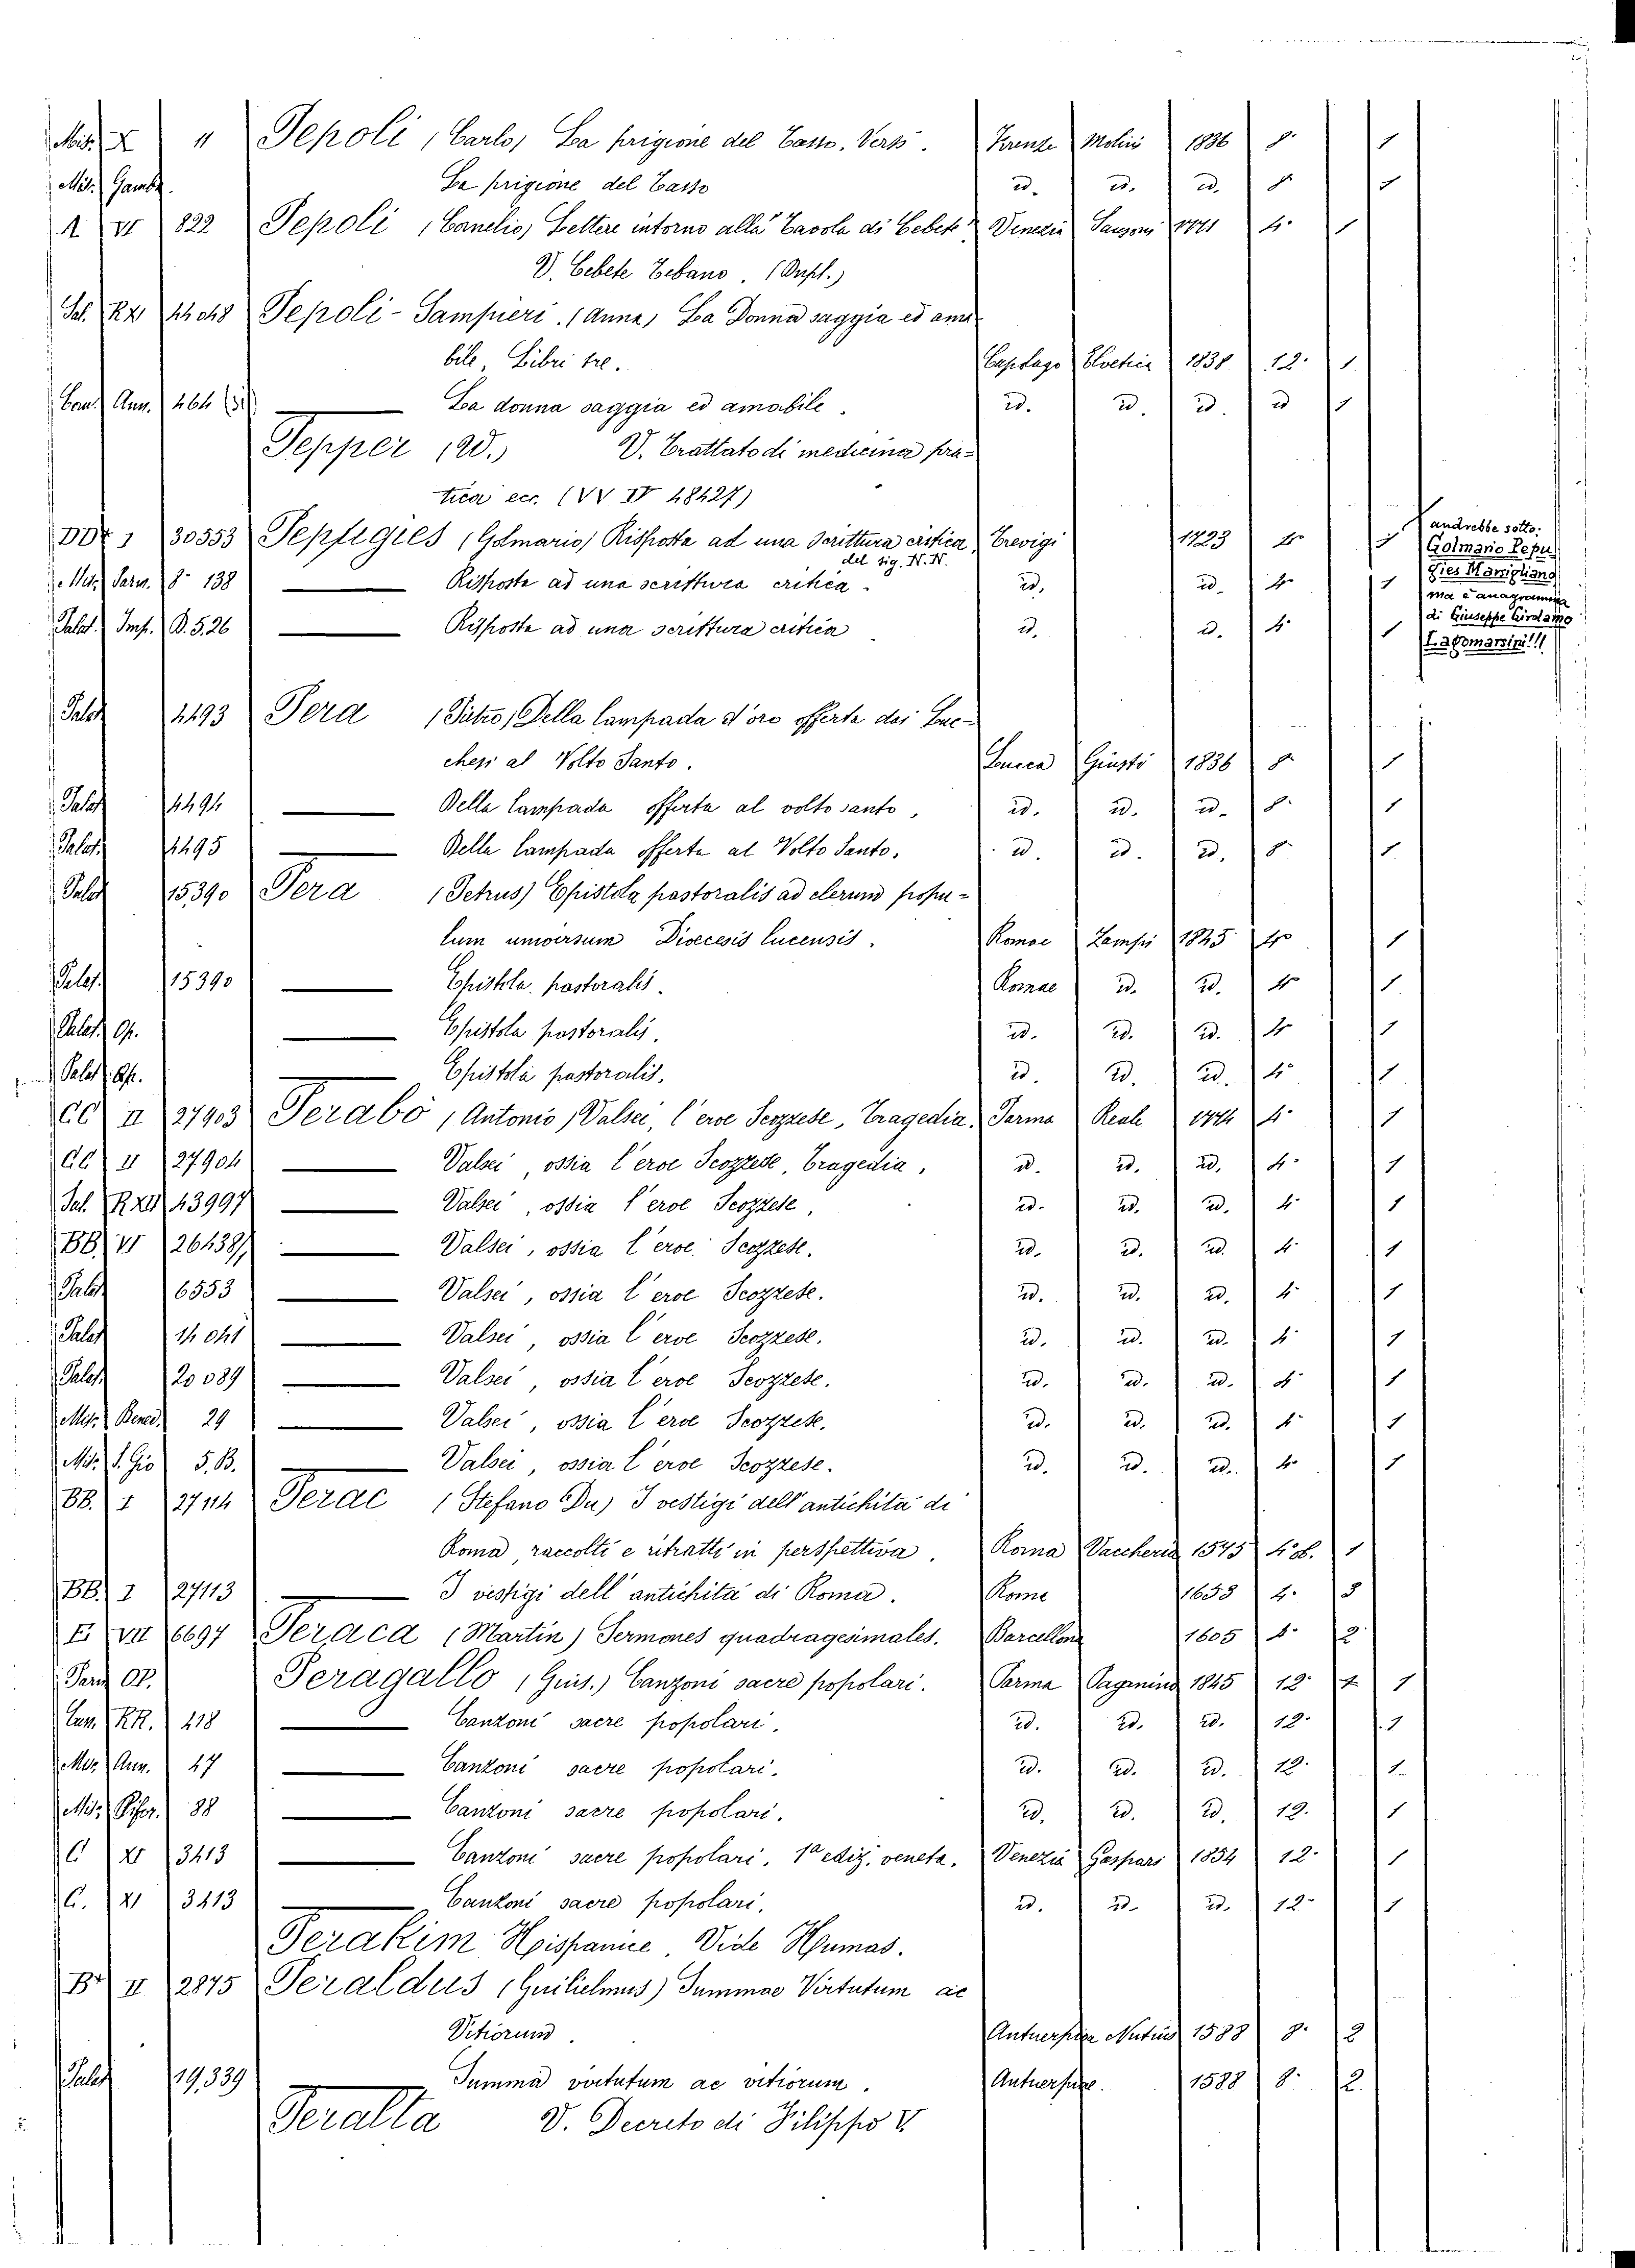 Mis. X " Pepoli (Carlo) La prigione del Tasso. Versi. Firenze Molini 1836 8° 1
Mis. Gamb. La prigione del Tasso id. id. id. 8° 1
A VI 822 Pepoli (Cornelio) Lettere intorno alla "Tavola di Cebete" Venezia Sansoni 1771 4° 1
V. Cebete Tebano. (Dupl.)
Sal. R 44048 Pepoli-Sampieri. (Anna) La Donna saggia ed ama
bile, Libri tre. Capolago Elvetica 1838 12° 1
Ann. 464 La donna saggia ed amabile. id. id. id. id 1
Pepper (W.) V. Trattato di medicina pra-
tica ecc. (VV IV 48427)
30553 Pepusgies (Golmario) Risposta ad una scrittura critica Trevigi 1723 4° 1
del sig. N. N.
Mis. Parm. 8° 138 ——— Risposta ad una scrittura critica id. id. 4° 1
Palat. Imp. B.5.26 ——— Risposta ad una scrittura critica id. id. 4° 1
andrebbe sotto:
Golmario Pepu
gies Marsigliano
ma è anagramma
di Giuseppe Girolamo
Lagomarsini!!!
Palat. 4493 Pera (Pietro) Della lampada d'oro offerta dai Luc-
chesi al Volto Santo. Lucca Giusti 1836 8° 1
Palat. 4494 ——— Della lampada offerta al volto santo, id. id. id. 8° 1
Palat. 4495 ——— Della lampada offerta al Volto Santo. id. id. id. 8° 1
Palat. 15390 Pera (Petrus) Epistola pastoralis ad clerum popu-
lum universum Dioecesis lucensis. Romae 1845 4° 1
Palat. 15390 ——— Epistola pastoralis. Romae id. id. 4° 1
Palat. Op. ——— Epistola pastoralis. id. id. id. 4° 1
Palat. Op. ——— Epistola pastoralis. id. id. id. 4° 1
CC II 27903 Perabò (Antonio) Valsei, l'eroe Scozzese, Tragedia, Parma Reale 1774 4° 1
CC II 27904 ——— Valsei, ossia l'eroe Scozzese, Tragedia, id. id. id. 4° 1
Sal. R XII 43997 ——— Valsei, ossia l'eroe Scozzese, id. id. id. 4° 1
BB. VI 26438 ——— Valsei, ossia l'eroe Scozzese. id. id. id. 4° 1
Palat. 6553 ——— Valsei, ossia l'eroe Scozzese. id. id. id. 4° 1
Palat. 14041 ——— Valsei, ossia l'eroe Scozzese. id. id. id. 4° 1
Palat. 20089 ——— Valsei, ossia l'eroe Scozzese. id. id. id. 4° 1
Mis. Bened. 29 ——— Valsei, ossia l'eroe Scozzese. id. id. id. 4° 1
Mis. S. Gio 5.B. ——— Valsei, ossia l'eroe Scozzese. id. id. id. 4° 1
BB. I 27114 Perac (Stefano Du) I vestigi dell'antichità di
Roma, raccolti e ritratti in perspettiva. Roma Vaccheria 1575 1
BB. I 27113 ——— I vestigi dell'antichità di Roma. Roma 1653 4° 3
E VII 6697 Peraca (Martin) Sermones quadragesimales. Barcellona 1605 4° 2
Parm. OP. Peragallo (Gius.) Canzoni sacre popolari. Parma Paganino 1845 12° 1
RR. 418 ——— Canzoni sacre popolari. id. id. id. 12° 1
Mis. Ann. 47 ——— Canzoni sacre popolari. id. id. id. 12° 1
Mis. 88 ——— Canzoni sacre popolari. id. id. id. 12° 1
C XI 3413 ——— Canzoni sacre popolari, 1ª ediz. veneta. Venezia Gaspari 1854 12° 1
C. XI 3413 ——— Canzoni sacre popolari. id. id. id. 12° 1
Perakim Hispanice. Vide Humas.
B II 2875 Peraldus (Guilielmus) Summae Virtutum ac
Vitiorum. Antuerpiae Nutius 1588 8° 2
Palat. 19,339 ——— Summa virtutum ac vitiorum. Antuerpiae. 1588 8° 2
Peralta V. Decreto di Filippo V